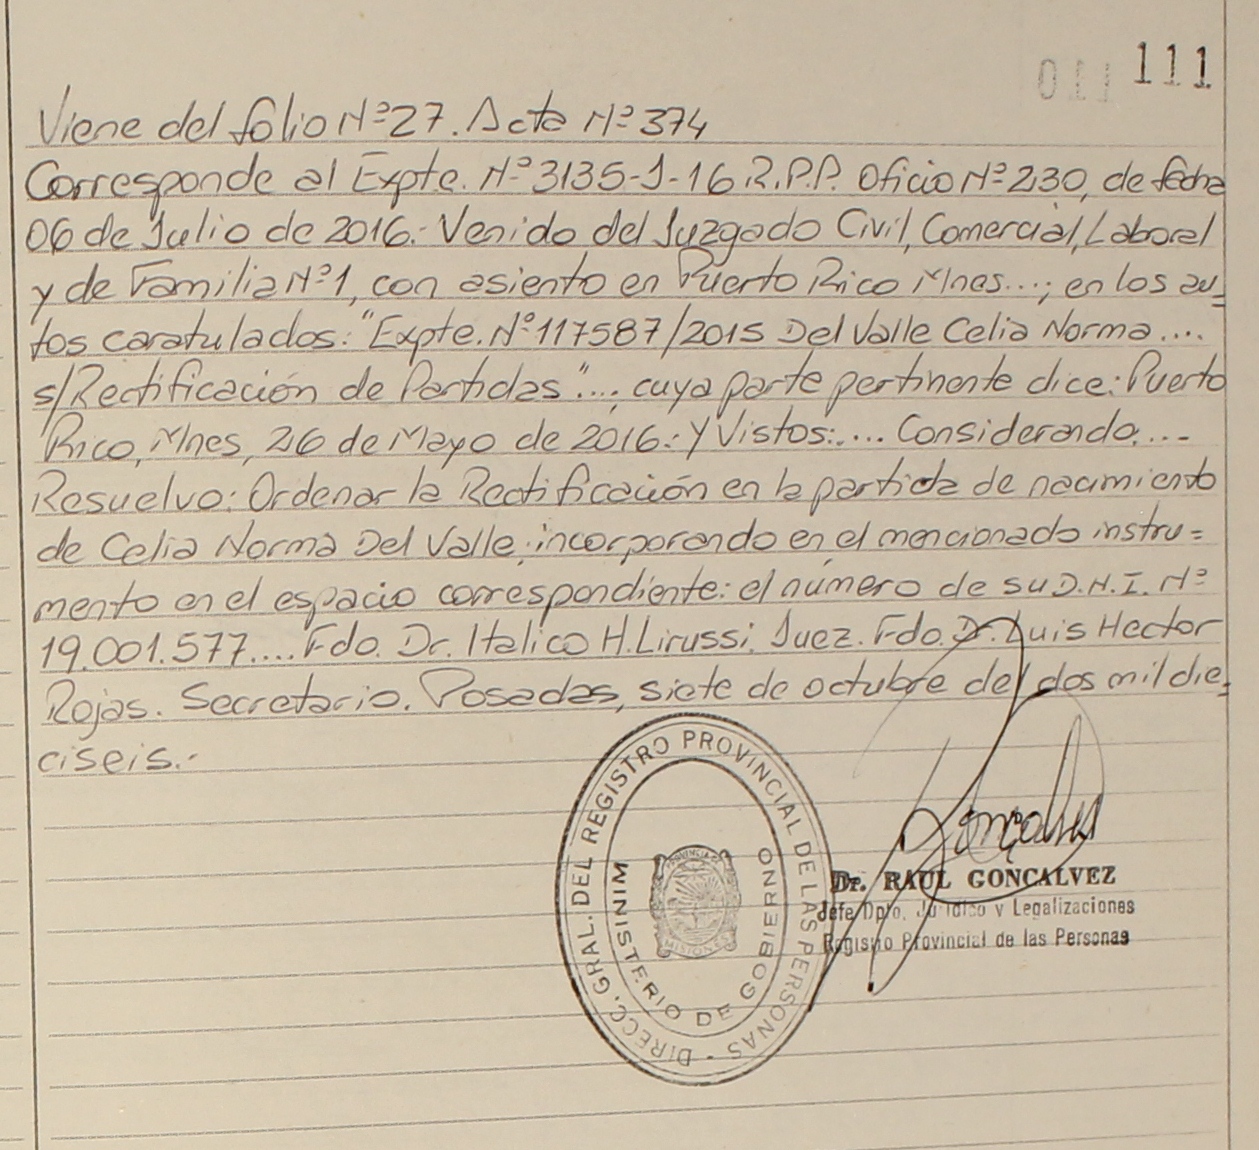 011 111
Viene del folio Nº 27. Acta Nº 374
Corresponde al Expte. Nº 3135-J-16 R.P.P. Oficio Nº 230, de fecha
06 de Julio de 2016.- Venido del Juzgado Civil, Comercial, Laboral
y de Familia Nº 1, con asiento en Puerto Rico Mnes...; en los au=
tos caratulados: "Expte. Nº 117587/2015 Del Valle Celia Norma....
s/Rectificación de Partidas"...; cuya parte pertinente dice: Puerto
Rico, Mnes, 26 de Mayo de 2016.- Y Vistos:.... Considerando....
Resuelvo: Ordenar la Rectificación en la partida de nacimiento
de Celia Norma Del Valle; incorporando en el mencionado instru=
mento en el espacio correspondiente: el número de su D.N.I. Nº
19.001.577.... Fdo. Dr. Italico H. Lirussi. Juez. Fdo. Dr. Luis Hector
Rojas. Secretario. Posadas, siete de octubre del dos mil die=
ciseis.-
DIRECC. GRAL. DEL REGISTRO PROVINCIAL DE LAS PERSONAS -
MINISTERIO DE GOBIERNO
PROVINCIA DE
MISIONES
Goncalves
Dr. RAUL GONCALVEZ
Jefe Dpto. Jurídico y Legalizaciones
Registro Provincial de las Personas